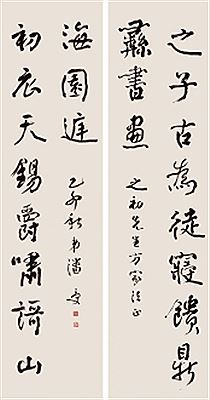 之子古為徒寢饋鼎
彝書畫
之初先生方家法正
初衣天錫爵嘯謌山
海園庭
乙卯秋弟潘受